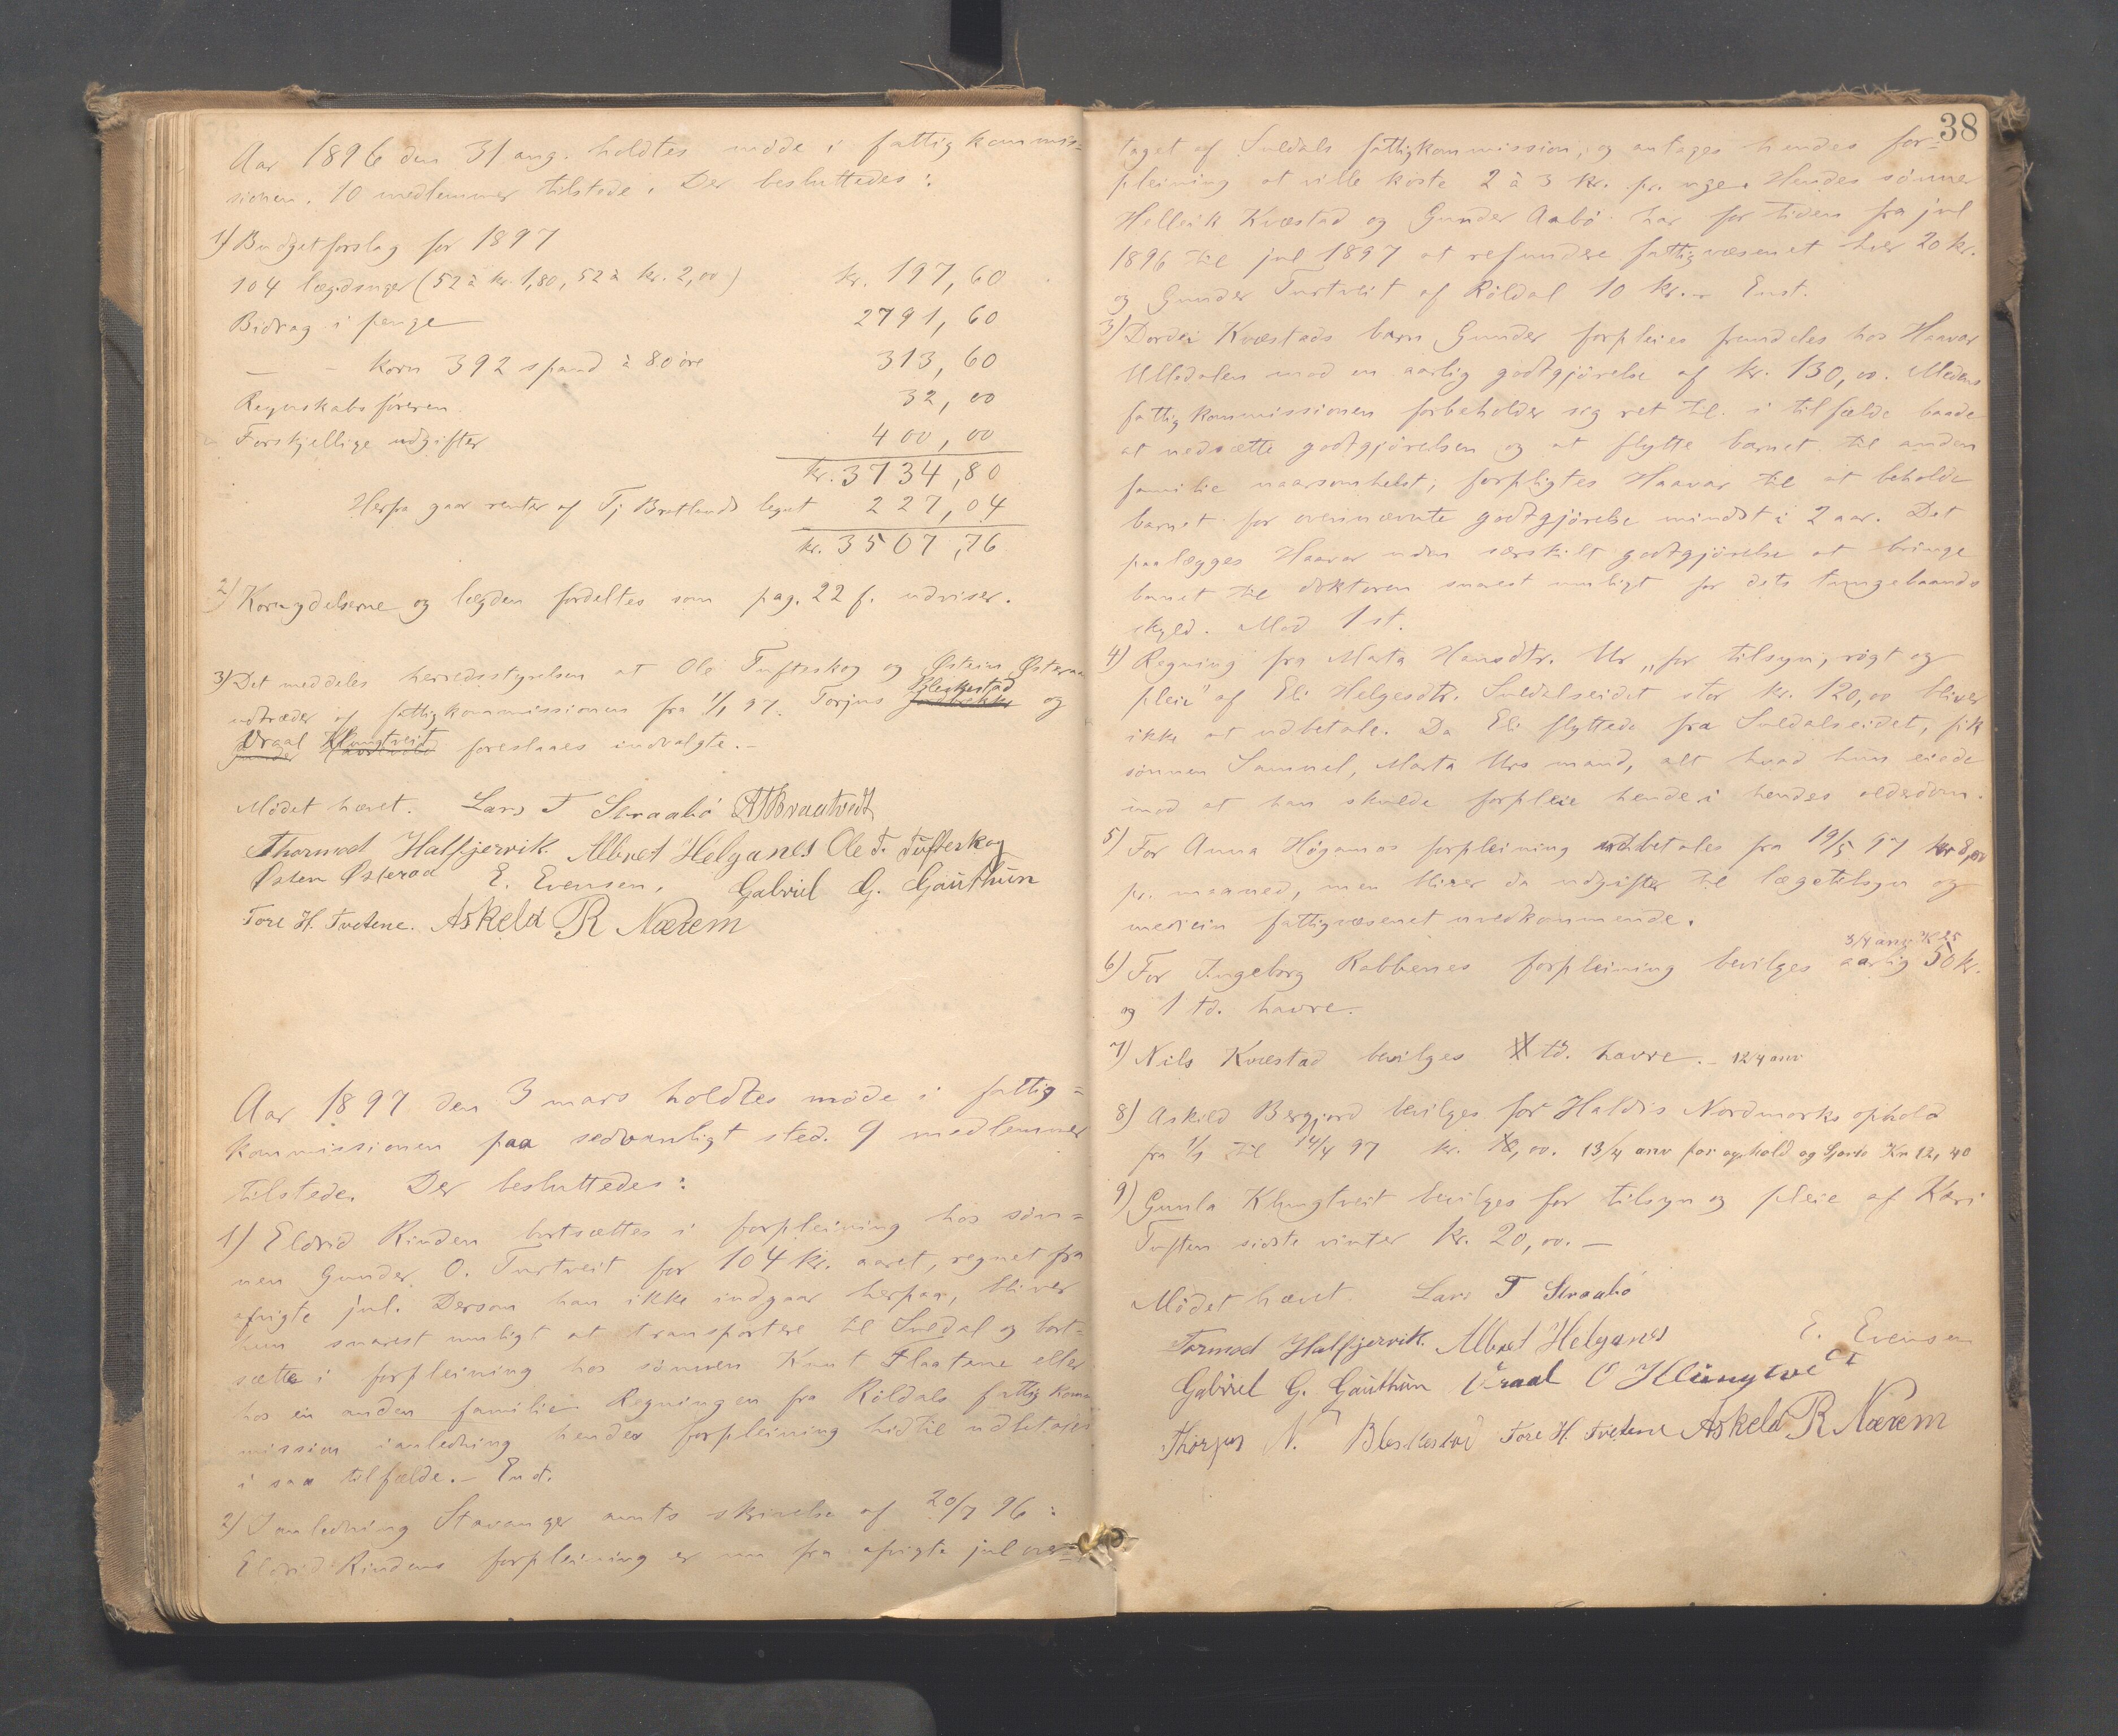 Aar 1896 den 31 aug. holdtes møde i fattigkommis=
sionen. 10 medlemmer tilstede. Der besluttedes:
1) Budgetforslag for 1897
104 lægdsuger (52 à kr. 1,80, 52 à kr. 2,00) kr. 197,60
Bidrag i penge 2791,60
— - korn 392 spand à 80 øre 313,60
Regnskabsføreren 32,00
Forskjellige udgifter 400,00
kr. 3734,80
Herfra gaar renter af Tj Bratlands legat 227,04
kr. 3507,76
2) Kornydelserne og lægden fordeltes som pag. 22 f. udviser.
3) Det meddeles herredsstyrelsen at Ole Tufteskog og Østein Østeraa
udtræder af fattigkommissionen fra 1/1 97. Torjus Bleskestad og
Vraal Klungtveit foreslaaes indvalgte. —
Mødet hævet. Lars T Straabø
Thormod Halfjervik. Albret Helganes Ole T. Tufteskog
Østen Østeraa E. Evensen, Gabriel G. Gauthun
Tore H. Tvetene. Askeld R Nærem
Aar 1897 den 3 mars holdtes møde i fattig=
kommissionen paa sedvanligt sted. 9 medlemmer
tilstede. Der besluttedes:
1) Eldrid Rinden bortsættes i forpleining hos søn=
nen Gunder O. Turtveit for 104 kr. aaret, regnet fra
afvigte jul. Dersom han ikke indgaar herpaa, bliver
hun snarest muligt at transportere til Suldal og bort=
sætte i forpleining hos sønnen Knut Flaatene eller
hos en anden familie. Regningen fra Røldals fattigkom
mission i anledning hendes forpleining hidtil udbetales
i saa tilfælde. — Enst.
2) I anledning Stavanger amts skrivelse af 20/7 96:
Eldrid Rindens forpleining er nu fra afvigte jul over=
38
taget af Suldals fattigkommission, og antages hendes for=
pleining at ville koste 2 à 3 kr. pr. uge. Hendes sønner
Hellvik Kvæstad og Gunder Aabø har for tiden fra jul
1896 til jul 1897 at refundere fattigvæsenet hver 20 kr.
og Gunder Turtveit af Røldal 10 kr. — Enst.
3) Dordei Kvæstads barn Gunder forpleies fremdeles hos Haavar
Ullsdalen mod en aarlig godtgjørelse af kr. 130,00. Medens
fattigkommissionen forbeholder sig ret til i tilfælde baade
at nedsætte godtgjørelsen og at flytte barnet til anden
familie naarsomhelst, forpligtes Haavar til at beholde
barnet for ovennævnte godtgjørelse mindst i 2 aar. Det
paalægges Haavar uden særskilt godtgjørelse at bringe
barnet til doktoren snarest muligt for dets tungebaands
skyld. Mod 1 st.
4) Regning fra Marta Hansdtr. Ur „for tilsyn, røgt og
pleie" af Eli Helgesdtr. Suldalseidet stor kr. 120,00 bliver
ikke at udbetale. Da Eli flyttede fra Suldalseidet, fik
sønnen Samuel, Marta Urs mand, alt hvad hun eiede
imod at han skulde forpleie hende i hendes alderdom.
5) For Anna Høgamos forpleining udbetales fra 19/5 97 kr 8,00
pr. maaned, men bliver da udgifter til lægetilsyn og
medicin fattigvæsenet uvedkommende.
3/4 anv. K 25
6) For Ingeborg Rabbenes forpleining bevilges aarlig 50 kr.
og 1 td. havre. —
7) Nils Kvæstad bevilges td. havre. — 12/4 anv
8) Askild Bergjord bevilges for Haldis Nordmarks ophold
fra 1/1 til 14/4 97 kr. ,00. 13/4 anv for ophold og Kr 12,40
9) Gunla Klungtveit bevilges for tilsyn og pleie af Kari
Tuften sidste vinter kr. 20,00. —
Mødet hævet. Lars T Straabø
Tormod Halfjervik. Albret Helganes E. Evensen
Gabriel G. Gauthun Vraal O Klungtveit
Thorjus N. Bleskestad Tore H. Tvetene Askeld R Nærem